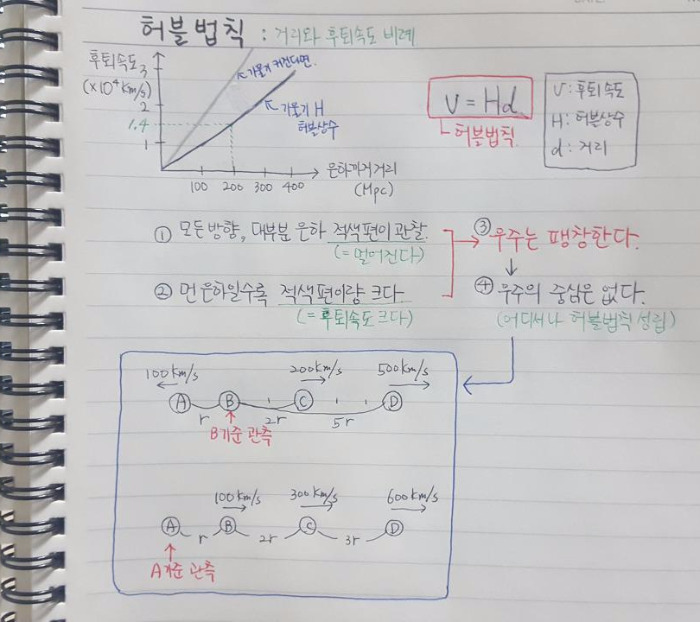 허블법칙 : 거리와 후퇴속도 비례
후퇴속도
(×10⁴km/s)
3
2
1.4
1
100 200 300 400
은하까지 거리
(Mpc)
↖ 기울기 커진다면.
↖ 기울기 H
허블상수
V = Hd
허블법칙
V : 후퇴속도
H : 허블상수
d : 거리
① 모든 방향, 대부분 은하 적색편이 관찰.
(= 멀어진다)
② 먼 은하일수록 적색편이량 크다.
(= 후퇴속도 크다)
③ 우주는 팽창한다.
④ 우주의 중심은 없다.
(어디서나 허블법칙 성립)
100km/s 200km/s 500km/s
A B C D
r 2r 5r
B기준 관측
100km/s 300km/s 600km/s
A r B 2r C 3r D
A기준 관측